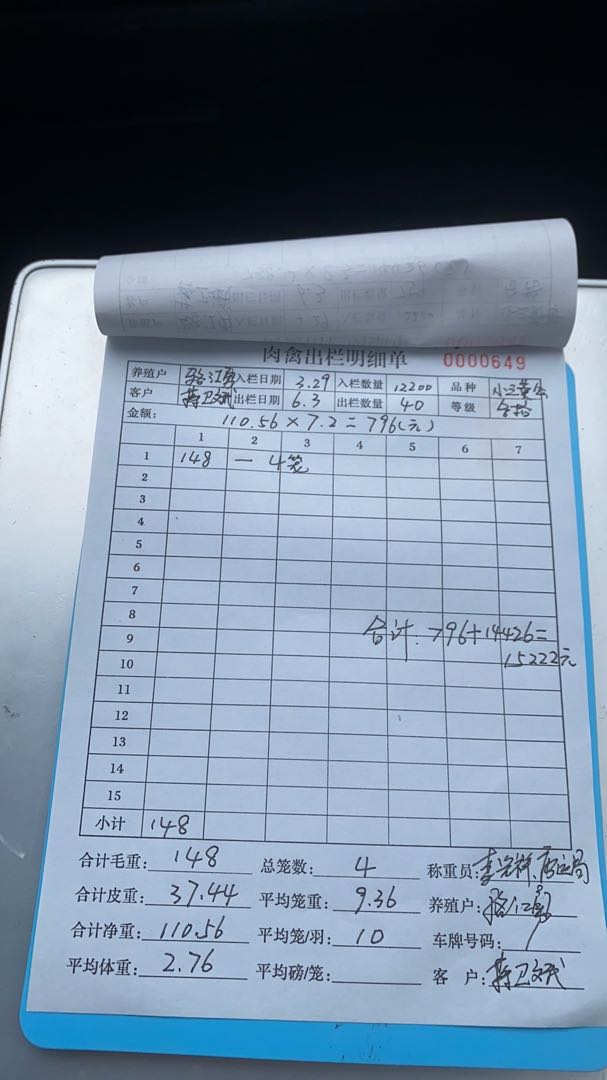 肉禽出栏明细单 0000649
养殖户 入栏日期 3.29 入栏数量 12200 品种
客户 出栏日期 6.3 出栏数量 40 等级 合格
金额: 110.56 × 7.2 = 796(元)
1 2 3 4 5 6 7
1 148 — 4笼
2
3
4
5
6
7
8
9 合计: 796+14426=
10 15222元
11
12
13
14
15
小计 148
合计毛重: 148 总笼数: 4 称重员:
合计皮重: 37.44 平均笼重: 9.36 养殖户:
合计净重: 110.56 平均笼/羽: 10 车牌号码: /
平均体重: 2.76 平均磅/笼: 客 户: